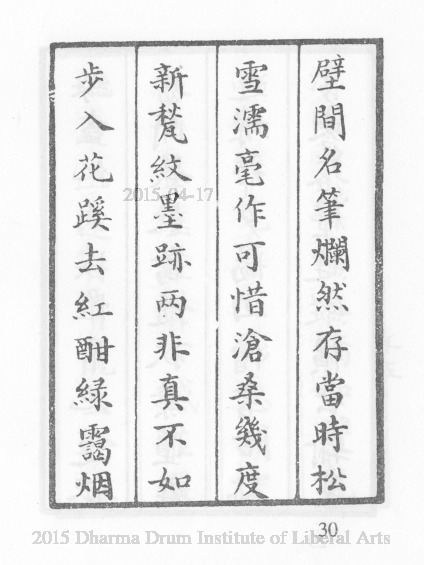 壁間名筆爛然存當時松
雪濡毫作可惜滄桑幾度
新甃紋墨跡两非真不如
步入花蹊去紅酣緑靄烟
2015-04-17
30
2015 Dharma Drum Institute of Liberal Arts